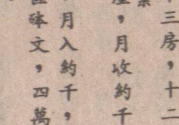 三房，十二
，月收約千
月入約千，
砵文，四萬